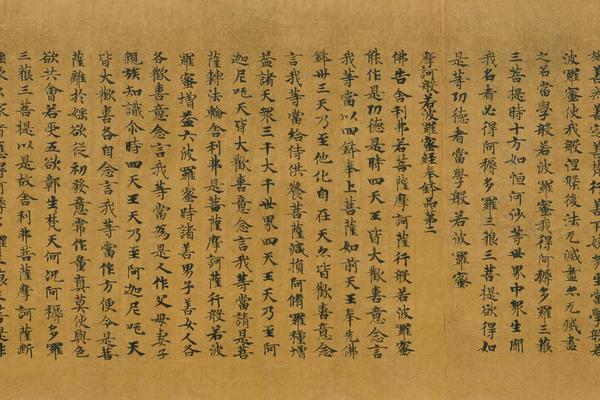 波羅蜜使我般涅槃後法无滅盡亦无滅盡
之名當學般若波羅蜜我得阿耨多羅三藐
三菩提時十方如恒河沙等世界中眾生聞
我名者必得阿耨多羅三藐三菩提欲得如
是等功德者當學般若波羅蜜
摩訶般若波羅蜜經奉鉢品第二
佛告舍利弗若菩薩摩訶薩行般若波羅蜜
能作是功德是時四天王皆大歡喜意念言
我等當以四鉢奉上菩薩如前天王奉先佛
鉢卅三天乃至他化自在天亦皆歡喜意念
言我等當給侍供養菩薩減損阿脩羅種增
益諸天眾三千大千世界四天王天乃至阿
迦尼吒天皆大歡喜意念言我等當請是菩
薩轉法輪舍利弗是菩薩摩訶薩行般若波
羅蜜增益六波羅蜜時諸善男子善女人各
各歡喜意念言我等當為是人作父母妻子
親族知識尒時四天王天乃至阿迦尼吒天
皆大歡喜各自念言我等當作方便令是菩
薩離於婬欲從初發意常作童真莫使與色
欲共會若受五欲鄣生梵天何況阿耨多羅
三藐三菩提以是故舍利弗菩薩摩訶薩斷